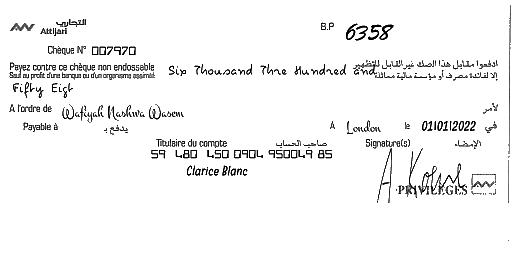 التجاري
Attijari
B.P 6358
Chèque N° 007970
Payez contre ce chèque non endossable
Sauf au profit d'une banque ou d'un organisme assimilé
Six Thousand Thre Hundred and
ادفعوا مقابل هذا الصك غير القابل للتظهير
إلا لفائدة مصرف أو مؤسسة مالية مماثلة
Fifty Eigt
A l'ordre de Wafiyah Nashwa Wasem لأمر
Payable à يدفع بـ A London le 01/01/2022 في
Titulaire du compte صاحب الحساب Signature(s) الإمضاء
59 480 450 0904 950049 85
Clarice Blanc
PRIVILEGES